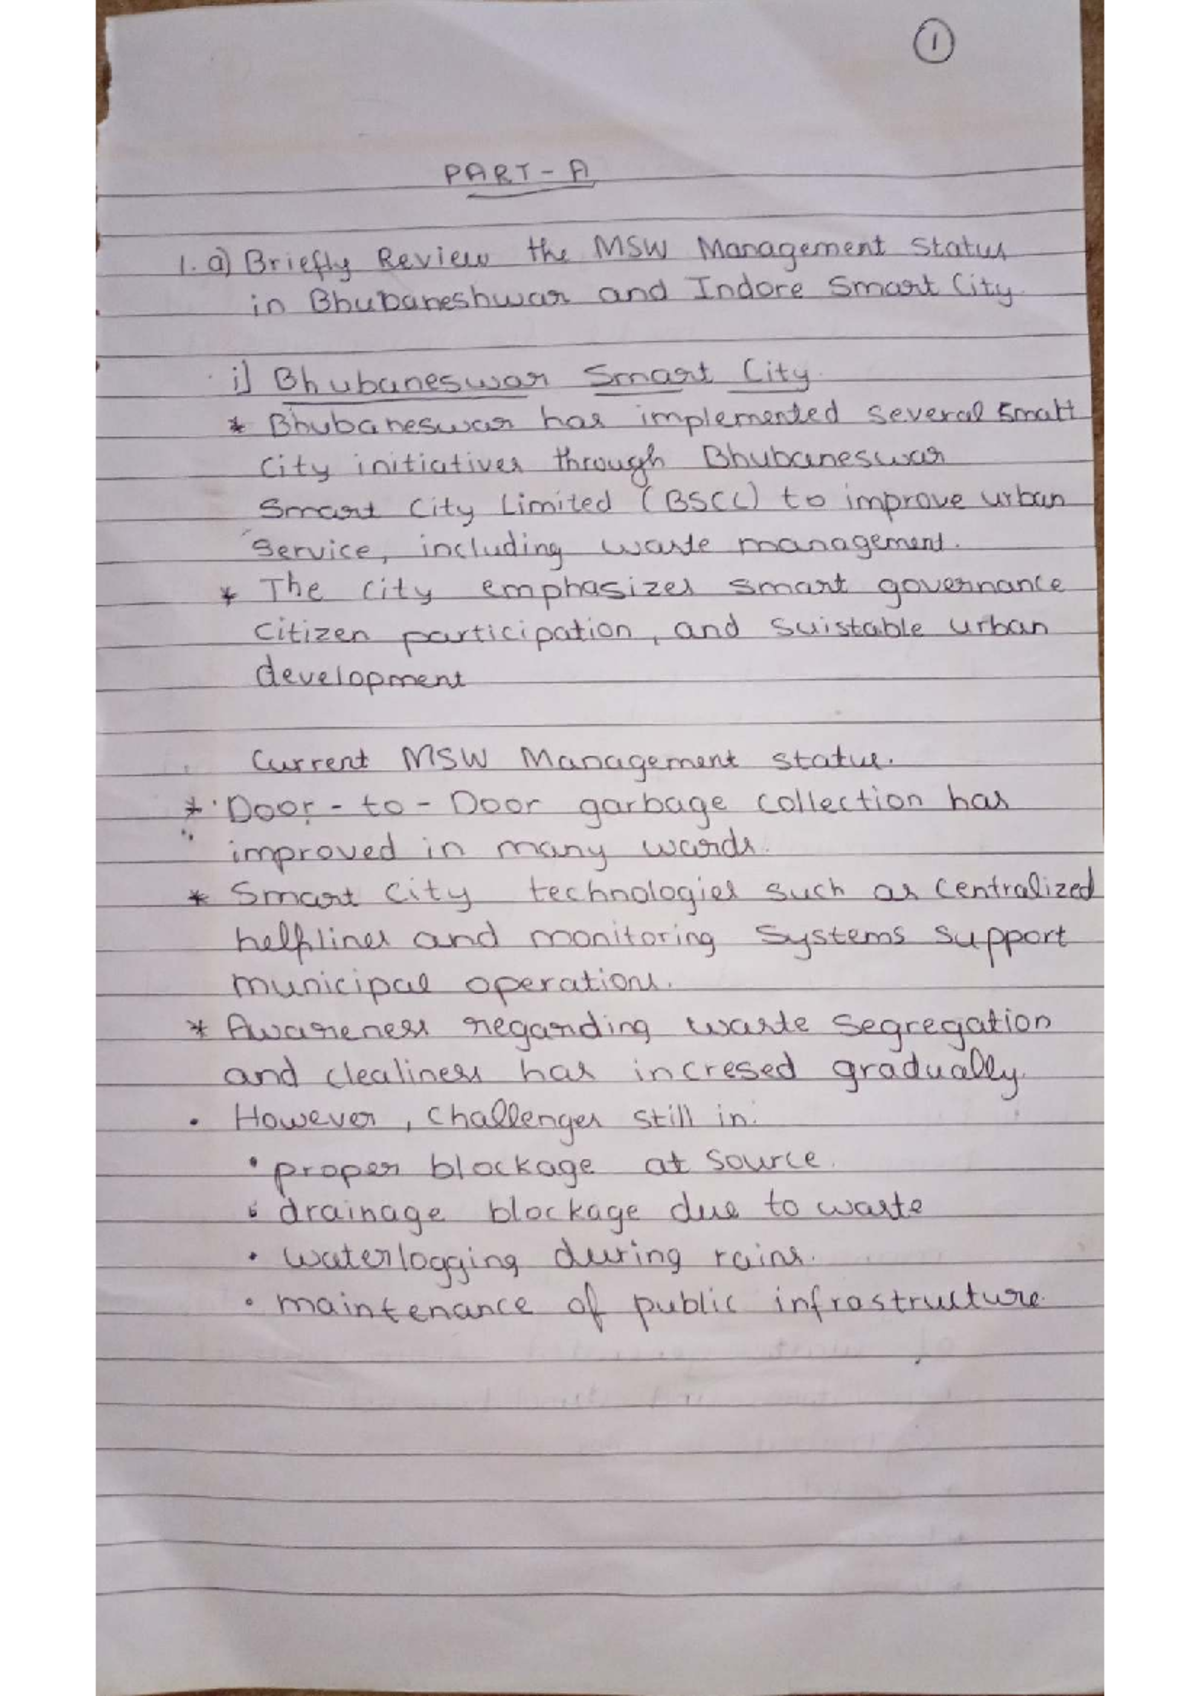 1
PART-A
1. a) Briefly Review the MSW Management Status
in Bhubaneshwar and Indore Smart City.
i] Bhubaneswar Smart City.
* Bhubaneswar has implemented several smatt
city initiatives through Bhubaneswar
Smart City Limited (BSCL) to improve urban
Service, including waste management.
* The city emphasizes smart governance
citizen participation, and suistable urban
development
Current MSW Management status.
* Door-to-Door garbage collection has
improved in many wards.
* Smart City technologies such as centralized
helplines and monitoring systems support
municipal operations.
* Awareness regarding waste segregation
and clealiness has incresed gradually.
• However, challenges still in:
• proper blockage at source.
• drainage blockage due to waste
• waterlogging during rains.
• maintenance of public infrastructure.